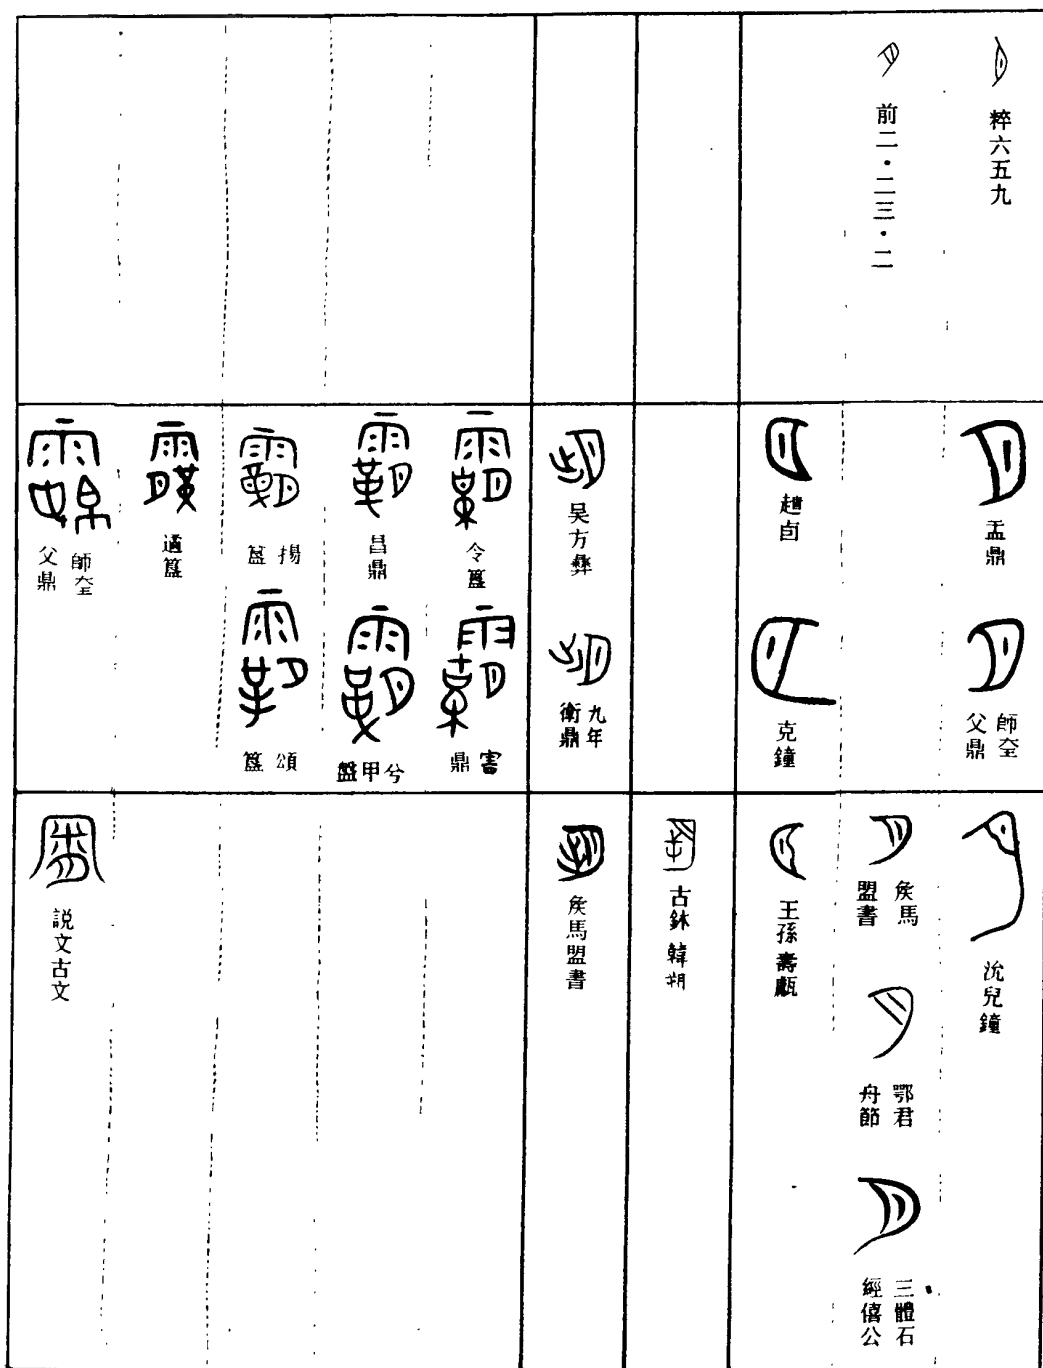 粹六五九
前二·二三·二
盂鼎
師㝨父鼎
趞卣
克鐘
吴方彝
九年衛鼎
令簋
害鼎
舀鼎
兮甲盤
揚簋
頌簋
遹簋
師㝨父鼎
沇兒鐘
矦馬盟書
鄂君舟節
三體石經僖公
王孫壽甗
古鉥 韓朔
矦馬盟書
説文古文